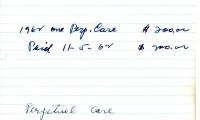 1962 one Perp. Care $ 200.00
Paid 11-5-62 $ 200.00
Perpetual Care